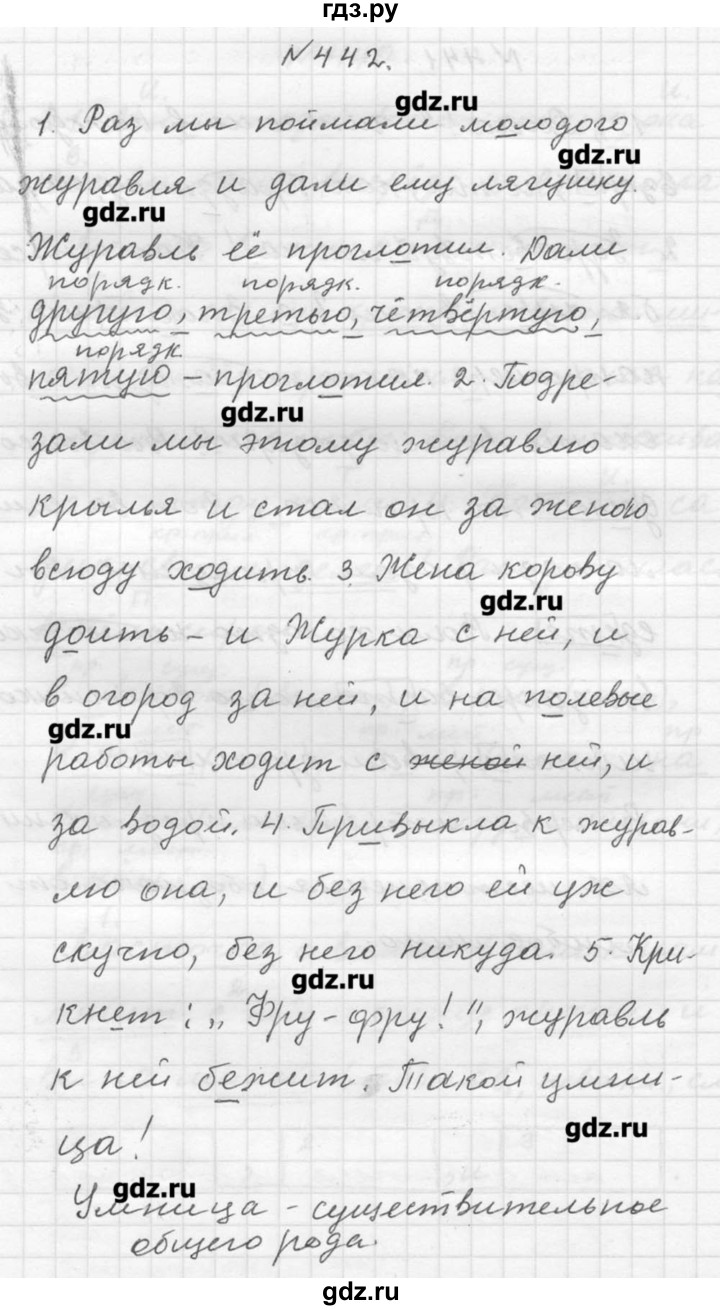 гдз.ру
№442.
gdz.ru
1. Раз мы поймали молодого
gdz.ru
журавля и дали ему лягушку.
gdz.ru
Журавль её проглотил. Дали
порядк. порядк. порядк.
другую, третью, четвёртую,
порядк
пятую – проглотил. 2. Подре-
gdz.ru
зали мы этому журавлю
крылья и стал он за женою
всюду ходить. 3. Жена корову
gdz.ru
доить – и Журка с ней, и
в огород за ней, и на полевые
gdz.ru
работы ходит с женой ней, и
за водой. 4. Привыкла к журав-
лю она, и без него ей уж
скучно, без него никуда. 5. Кри-
gdz.ru
кнет: „Фру-фру!", журавль
к ней бежит. Такой умни-
gdz.ru
ца!
gdz.ru
Умница – существительное
общего рода.
gdz.ru